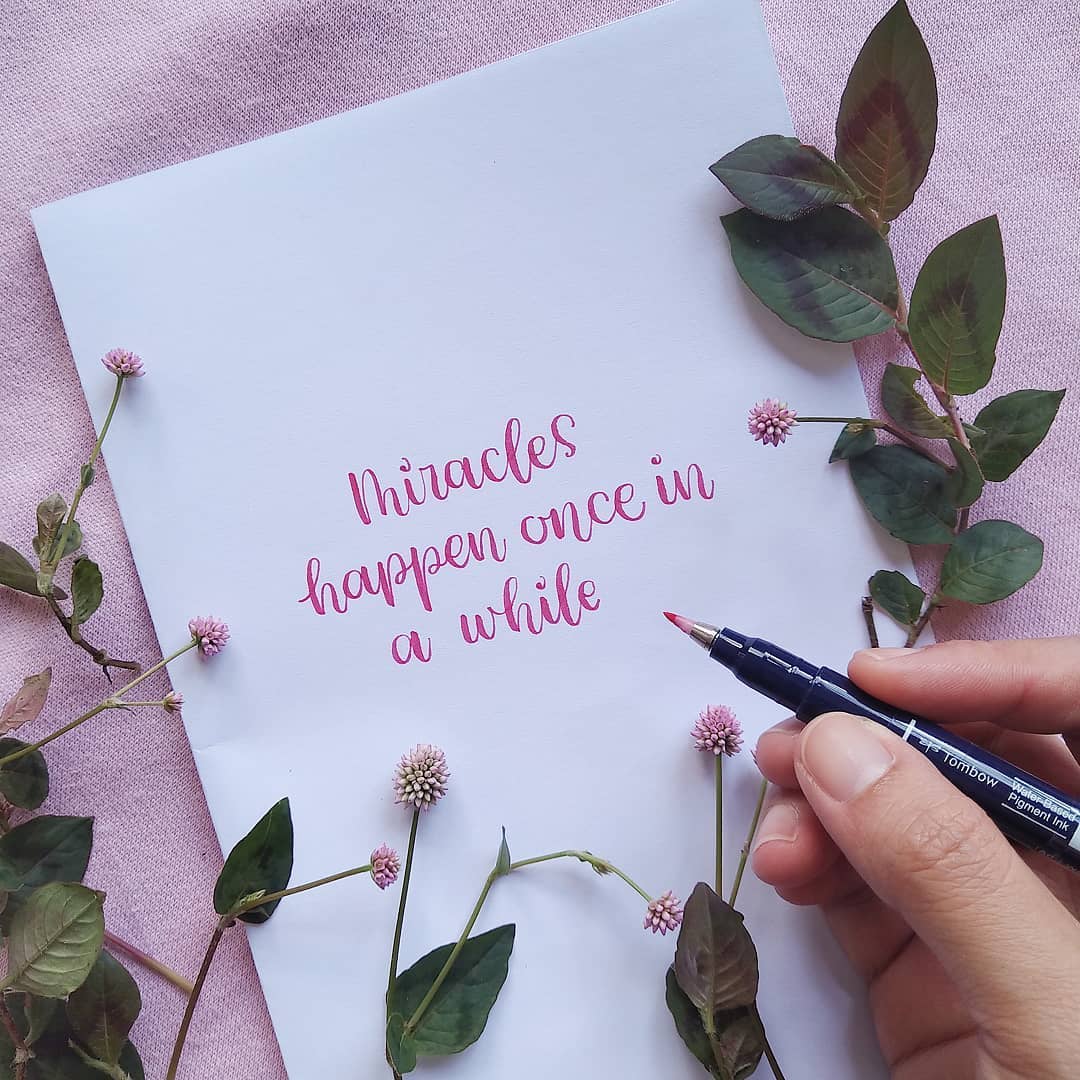 Miracles
happen once in
a while
Tombow
Water-Based
Pigment Ink